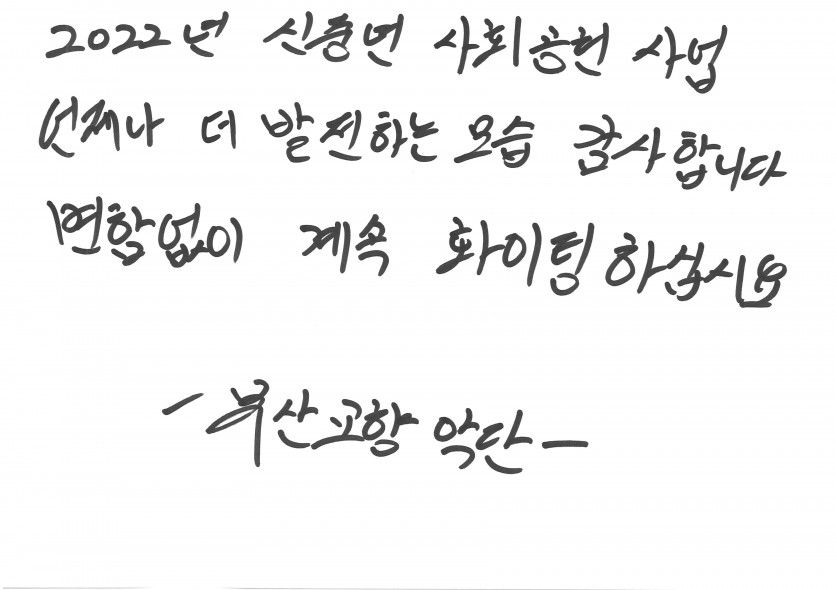 2022년 신중년 사회공헌 사업
언제나 더 발전하는 모습 감사합니다
변함없이 계속 화이팅 하십시요
- 부산고향 악단 -